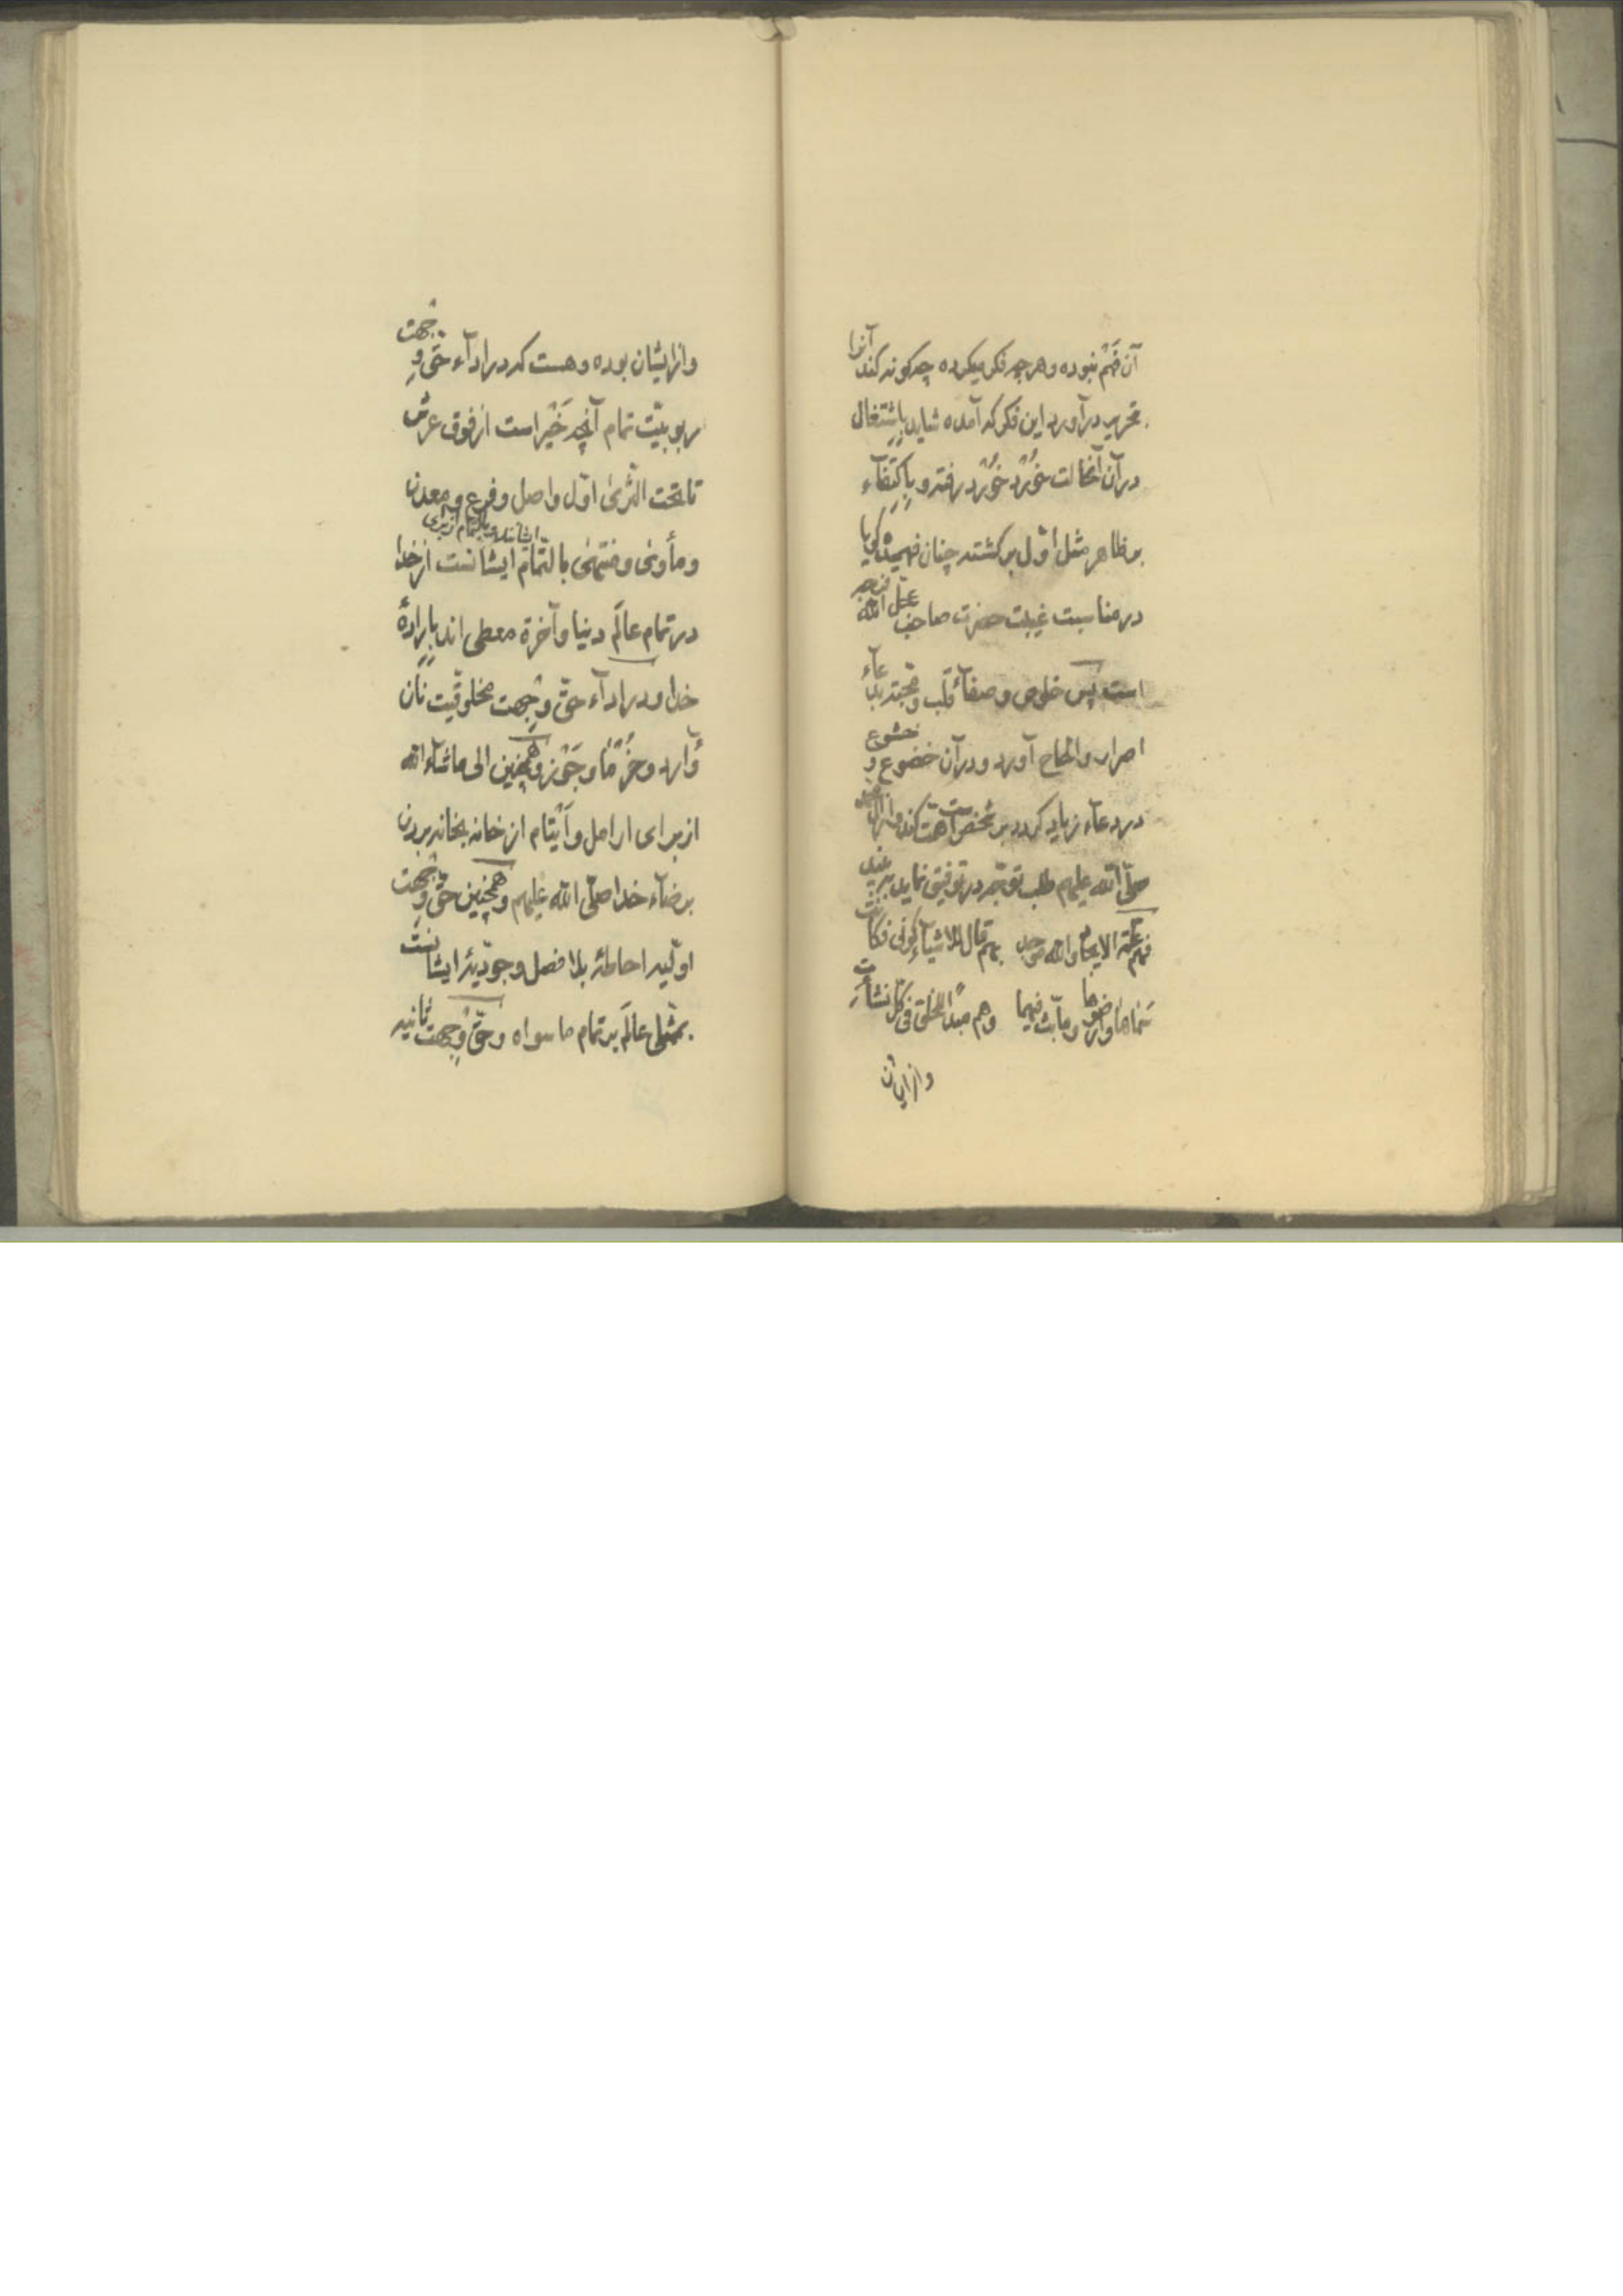 آن فَهْم نبوده و هر چه فکر میکرده چگونه کند آنرا
بتحریر درآورد این فکر که آمده شاید بِاِشتغال
در آن آنحالت خُورْد خُورْد رفته و بِاِکتِفآء
بر ظاهر مثل اوّل برگشته چنان فهمیده گویا
در مناسبت غیبت حضرت صاحب عجّل الله فرجه
است پس خلوص و صفآء قلب و محبّت بدعآء
اصرار و الحاح آورد و در آن خضوع و خشوع
در دعآء زیاد کردد بر شخص است همّت کند و از
صلّی الله علیهم طلب توجّه در توفیق نماید
فهم علّة الایجاد والله موجد بهم قال للاشیآء کونی فکانت
سَماها وارضوها وما بثّ فیهما وهم مبدأ الخلق فی کلّ نشأت
و از ایشان
و از ایشان بوده و هست که در اَدآء حقّ و جهت
ربوبیّت تمام آنچه خَیْر است از فوق عرش
تا تحت الثّریٰ اوّل و اصل و فرع و معدن
و مأوی و منتهی بالتّمام ایشانست از خدا
در تمام عالَم دنیا و آخرة معطی اند بِاِرادهٔ
خدا و در اَدآء حقّ و جهت مخلوقیّت نان
و آرد و خُرْما و جَوْز و همچنین الی ماشآء الله
از برای ارامل و اَیْتام از خانه بخانه بردن
برضآء خدا صلّی الله علیهم و همچنین حقّ و جهت
اوّلیه احاطهٔ بلا فصل وجودیّهٔ ایشانست
بمثلی عالَم بر تمام ماسواه و حقّ و جهت ثانیه